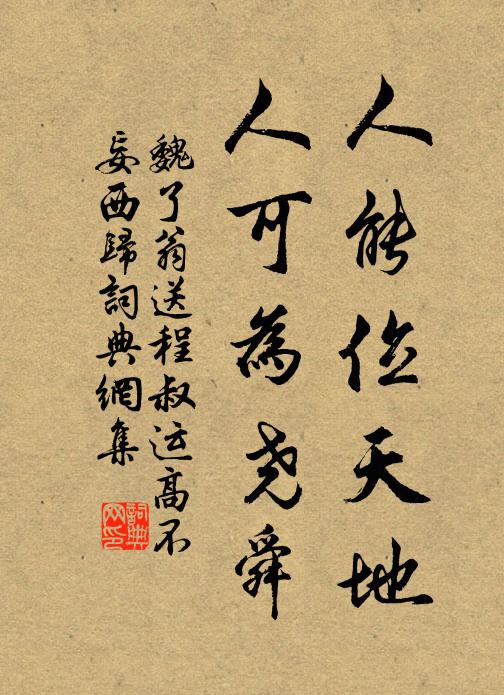 人能位天地
人可為堯舜
魏了翁送程叔运高不
妄西歸詞典網集
詞典网印